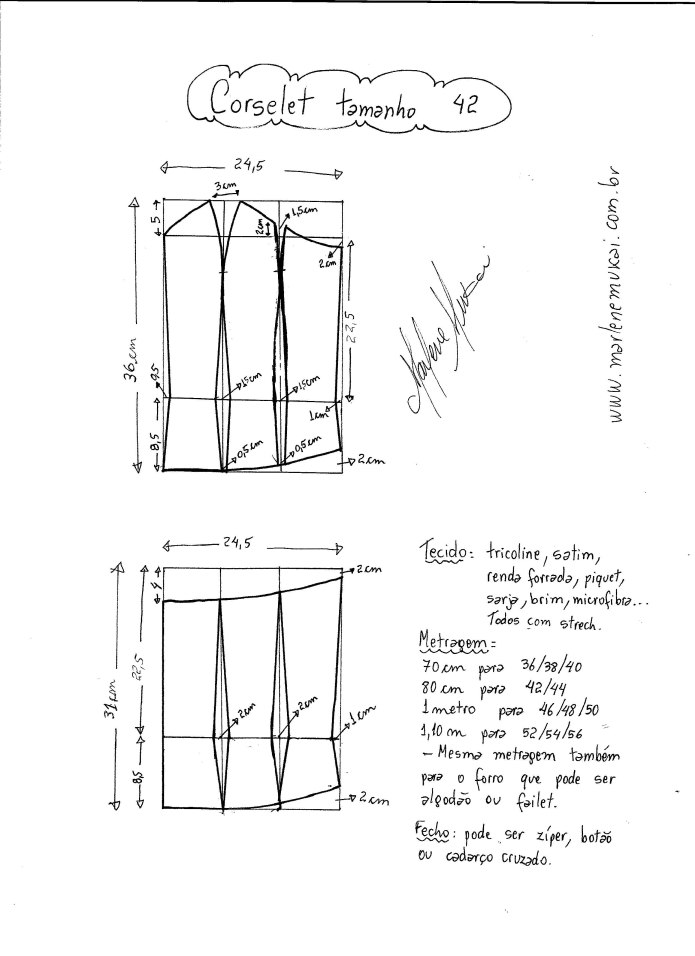 Corselet tamanho 42
24,5
3cm
5
2cm
1,5cm
2cm
36cm
22,5
9,5
1,5cm
1,5cm
1cm
8,5
0,5cm
0,5cm
2cm
Marlene Mukai
www.marlenemukai.com.br
24,5
2cm
4
31cm
22,5
2cm
2cm
1cm
8,5
2cm
Tecido: tricoline, satim,
renda forrada, piquet,
sarja, brim, microfibra...
Todos com strech.
Metragem=
70cm para 36/38/40
80cm para 42/44
1 metro para 46/48/50
1,10m para 52/54/56
– Mesma metragem também
para o forro que pode ser
algodão ou failet.
Fecho: pode ser zíper, botão
ou cadarço cruzado.